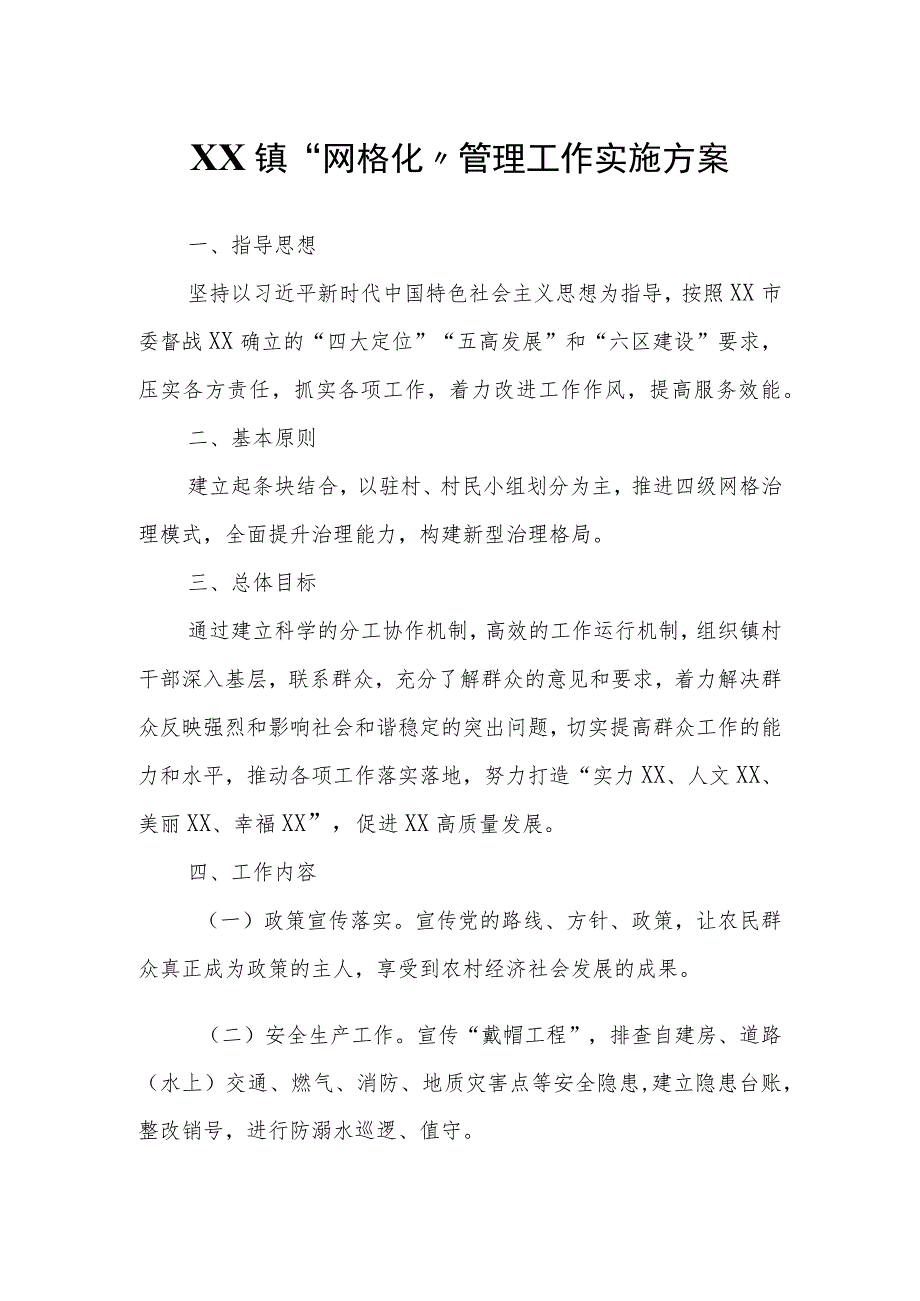 XX镇“网格化〃管理工作实施方案
一、指导思想
坚持以习近平新时代中国特色社会主义思想为指导，按照XX市
委督战XX确立的“四大定位”“五高发展”和“六区建设”要求，
压实各方责任，抓实各项工作，着力改进工作作风，提高服务效能。
二、基本原则
建立起条块结合，以驻村、村民小组划分为主，推进四级网格治
理模式，全面提升治理能力，构建新型治理格局。
三、总体目标
通过建立科学的分工协作机制，高效的工作运行机制，组织镇村
干部深入基层，联系群众，充分了解群众的意见和要求，着力解决群
众反映强烈和影响社会和谐稳定的突出问题，切实提高群众工作的能
力和水平，推动各项工作落实落地，努力打造“实力XX、人文XX、
美丽XX、幸福XX”，促进XX高质量发展。
四、工作内容
（一）政策宣传落实。宣传党的路线、方针、政策，让农民群
众真正成为政策的主人，享受到农村经济社会发展的成果。
（二）安全生产工作。宣传“戴帽工程”，排查自建房、道路
（水上）交通、燃气、消防、地质灾害点等安全隐患,建立隐患台账，
整改销号，进行防溺水巡逻、值守。